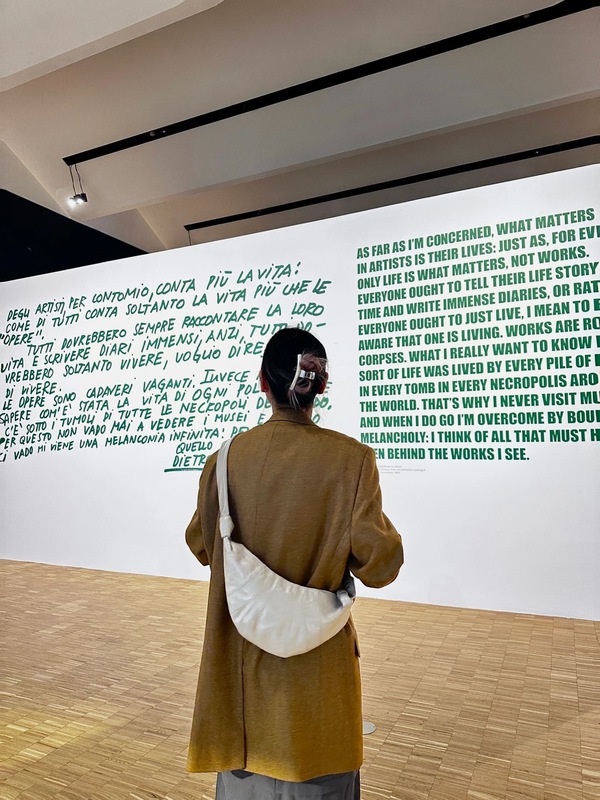 DEGLI ARTISTI, PER CONTOMIO, CONTA PIÙ LA VITA:
COME DI TUTTI CONTA SOLTANTO LA VITA PIÙ CHE LE
"OPERE".
TUTTI DOVREBBERO SEMPRE RACCONTARE LA LORO
VITA E SCRIVERE DIARI IMMENSI, ANZI, TUTTI DO-
VREBBERO SOLTANTO VIVERE, VOGLIO DIRE
DI VIVERE.
LE OPERE SONO CADAVERI VAGANTI. INVECE
SAPERE COM'E' STATA LA VITA DI OGNI
C'E' SOTTO I TUMOLI DI TUTTE LE NECROPOLI
PER QUESTO NON VADO MAI A VEDERE I MUSEI E
CI VADO MI VIENE UNA MELANCONIA INFINITA:
QUELLO
DIETRO
AS FAR AS I'M CONCERNED, WHAT MATTERS
IN ARTISTS IS THEIR LIVES: JUST AS, FOR
ONLY LIFE IS WHAT MATTERS, NOT WORKS.
EVERYONE OUGHT TO TELL THEIR LIFE STORY
TIME AND WRITE IMMENSE DIARIES, OR
EVERYONE OUGHT TO JUST LIVE, I MEAN TO
AWARE THAT ONE IS LIVING. WORKS ARE
CORPSES. WHAT I REALLY WANT TO KNOW
SORT OF LIFE WAS LIVED BY EVERY PILE OF
IN EVERY TOMB IN EVERY NECROPOLIS
THE WORLD. THAT'S WHY I NEVER VISIT
AND WHEN I DO GO I'M OVERCOME BY
MELANCHOLY: I THINK OF ALL THAT MUST
BEHIND THE WORKS I SEE.